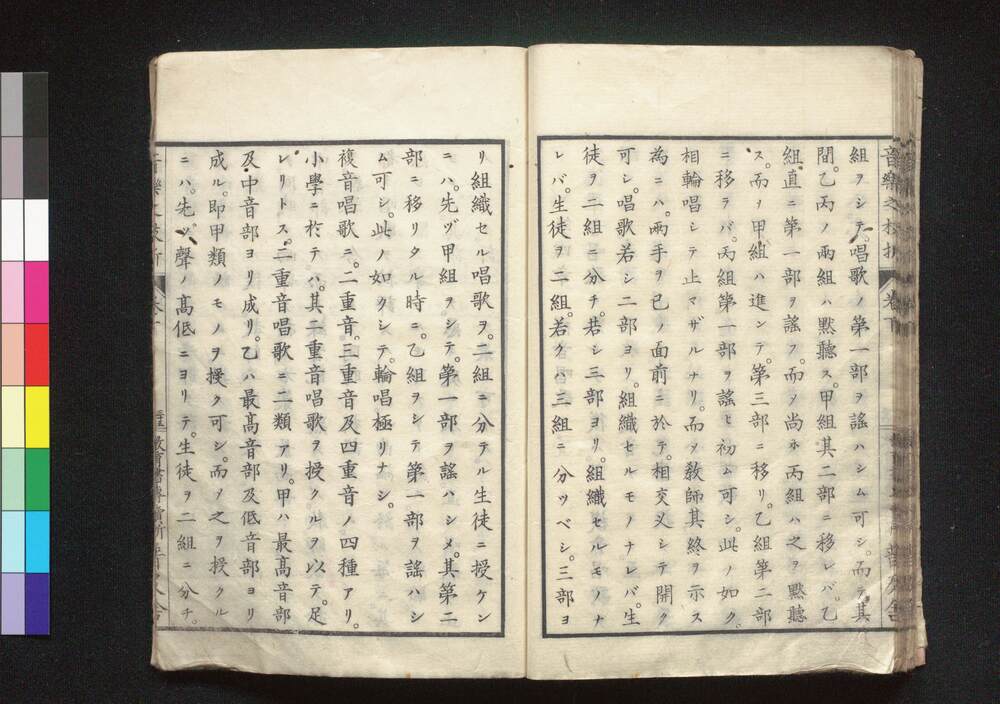 組ヲシテ、唱歌ノ第一部ヲ謠ハシム可シ。而テ、其
間。乙丙ノ兩組ハ黙聽ス。甲組其二部ニ移レバ。乙
組直ニ第一部ヲ謠フ。而ノ尚ホ丙組ハ之ヲ黙聽
ス。而ヲ甲組ハ進ンテ。第三部ニ移リ。乙組第二部
ニ移ラバ。丙組第一部ヲ謠ヒ初ム可シ。此ノ如ク。
相輪唱シテ止マザルナリ。而ノ教師其終ヲ示ス
為ニハ。兩手ヲ己ノ面前ニ於テ。相交叉シテ開ク
可シ。唱歌若シ二部ヨリ。組織セルモノナレバ。生
徒ヲ二組ニ分チ。若シ三部ヨリ。組織セルモノナ
レバ。生徒ヲ二組。若クハ三組ニ分ツベシ。三部ヨ
音樂之枝折
卷下
リ組織セル唱歌ヲ。二組ニ分テル生徒ニ授ケン
ニハ。先ヅ甲組ヲシテ。第一部ヲ謠ハシメ。其第二
部ニ移リタル時ニ。乙組ヲシテ第一部ヲ謠ハシ
ム可シ。此ノ如クシテ。輪唱極リナシ。
複音唱歌ニ。二重音。三重音及四重音ノ四種アリ。
小學ニ於テハ。其二重音唱歌ヲ授クルヲ以テ。足
レリトス。二重音唱歌ニ二類アリ。甲ハ最高音部
及中音部ヨリ成リ。乙ハ最高音部及低音部ヨリ
成ル。即甲類ノモノヲ授ク可シ。而ノ之ヲ授クル
ニハ。先ツ聲ノ高低ニヨリテ。生徒ヲ二組ニ分チ。